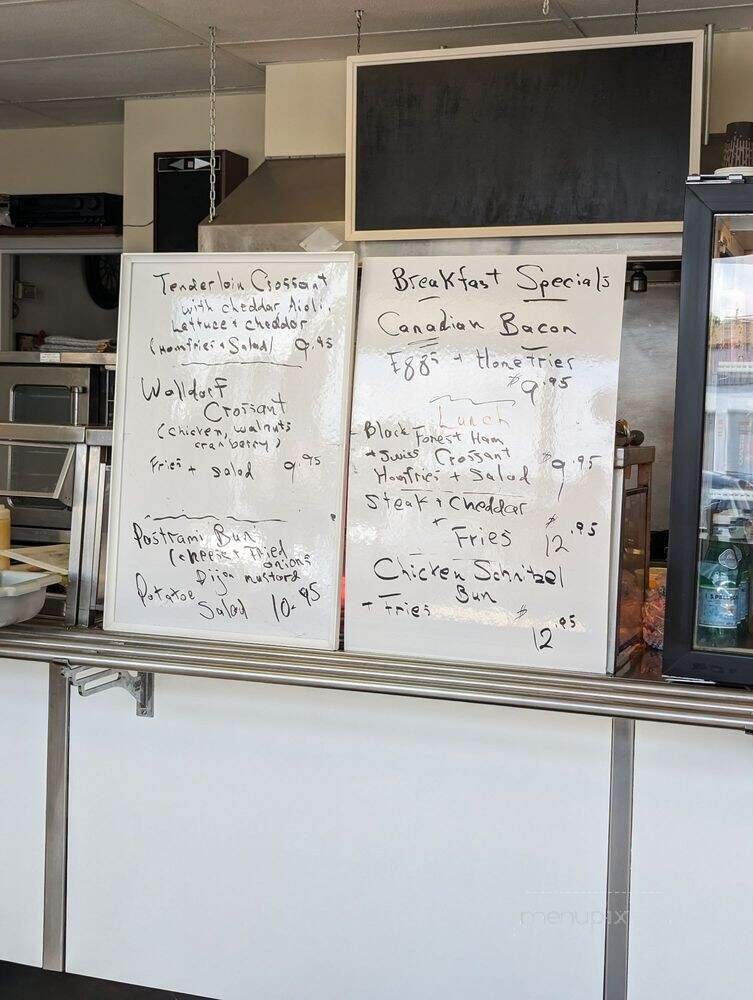 Tenderloin Crossant
with cheddar Aioli,
Lettuce + cheddor
(Homfries + Salad) 9.95
Walldorf
Crossant
(chicken, walnuts
cranberry)
Fries + salad 9.95
Pastrami Bun
(cheese + Fried
onions
Dijon mustard
Potatoe
Salad 10.95
Breakfast Specials
Canadian Bacon
Eggs + Homefries
$9.95
Lunch
Black Forest Ham
+ Swiss Crossant
Homfries + Salad $9.95
Steak + Cheddar
+ Fries $12.95
Chicken Schnitzel
Bun
+ Fries $12.95
menupix